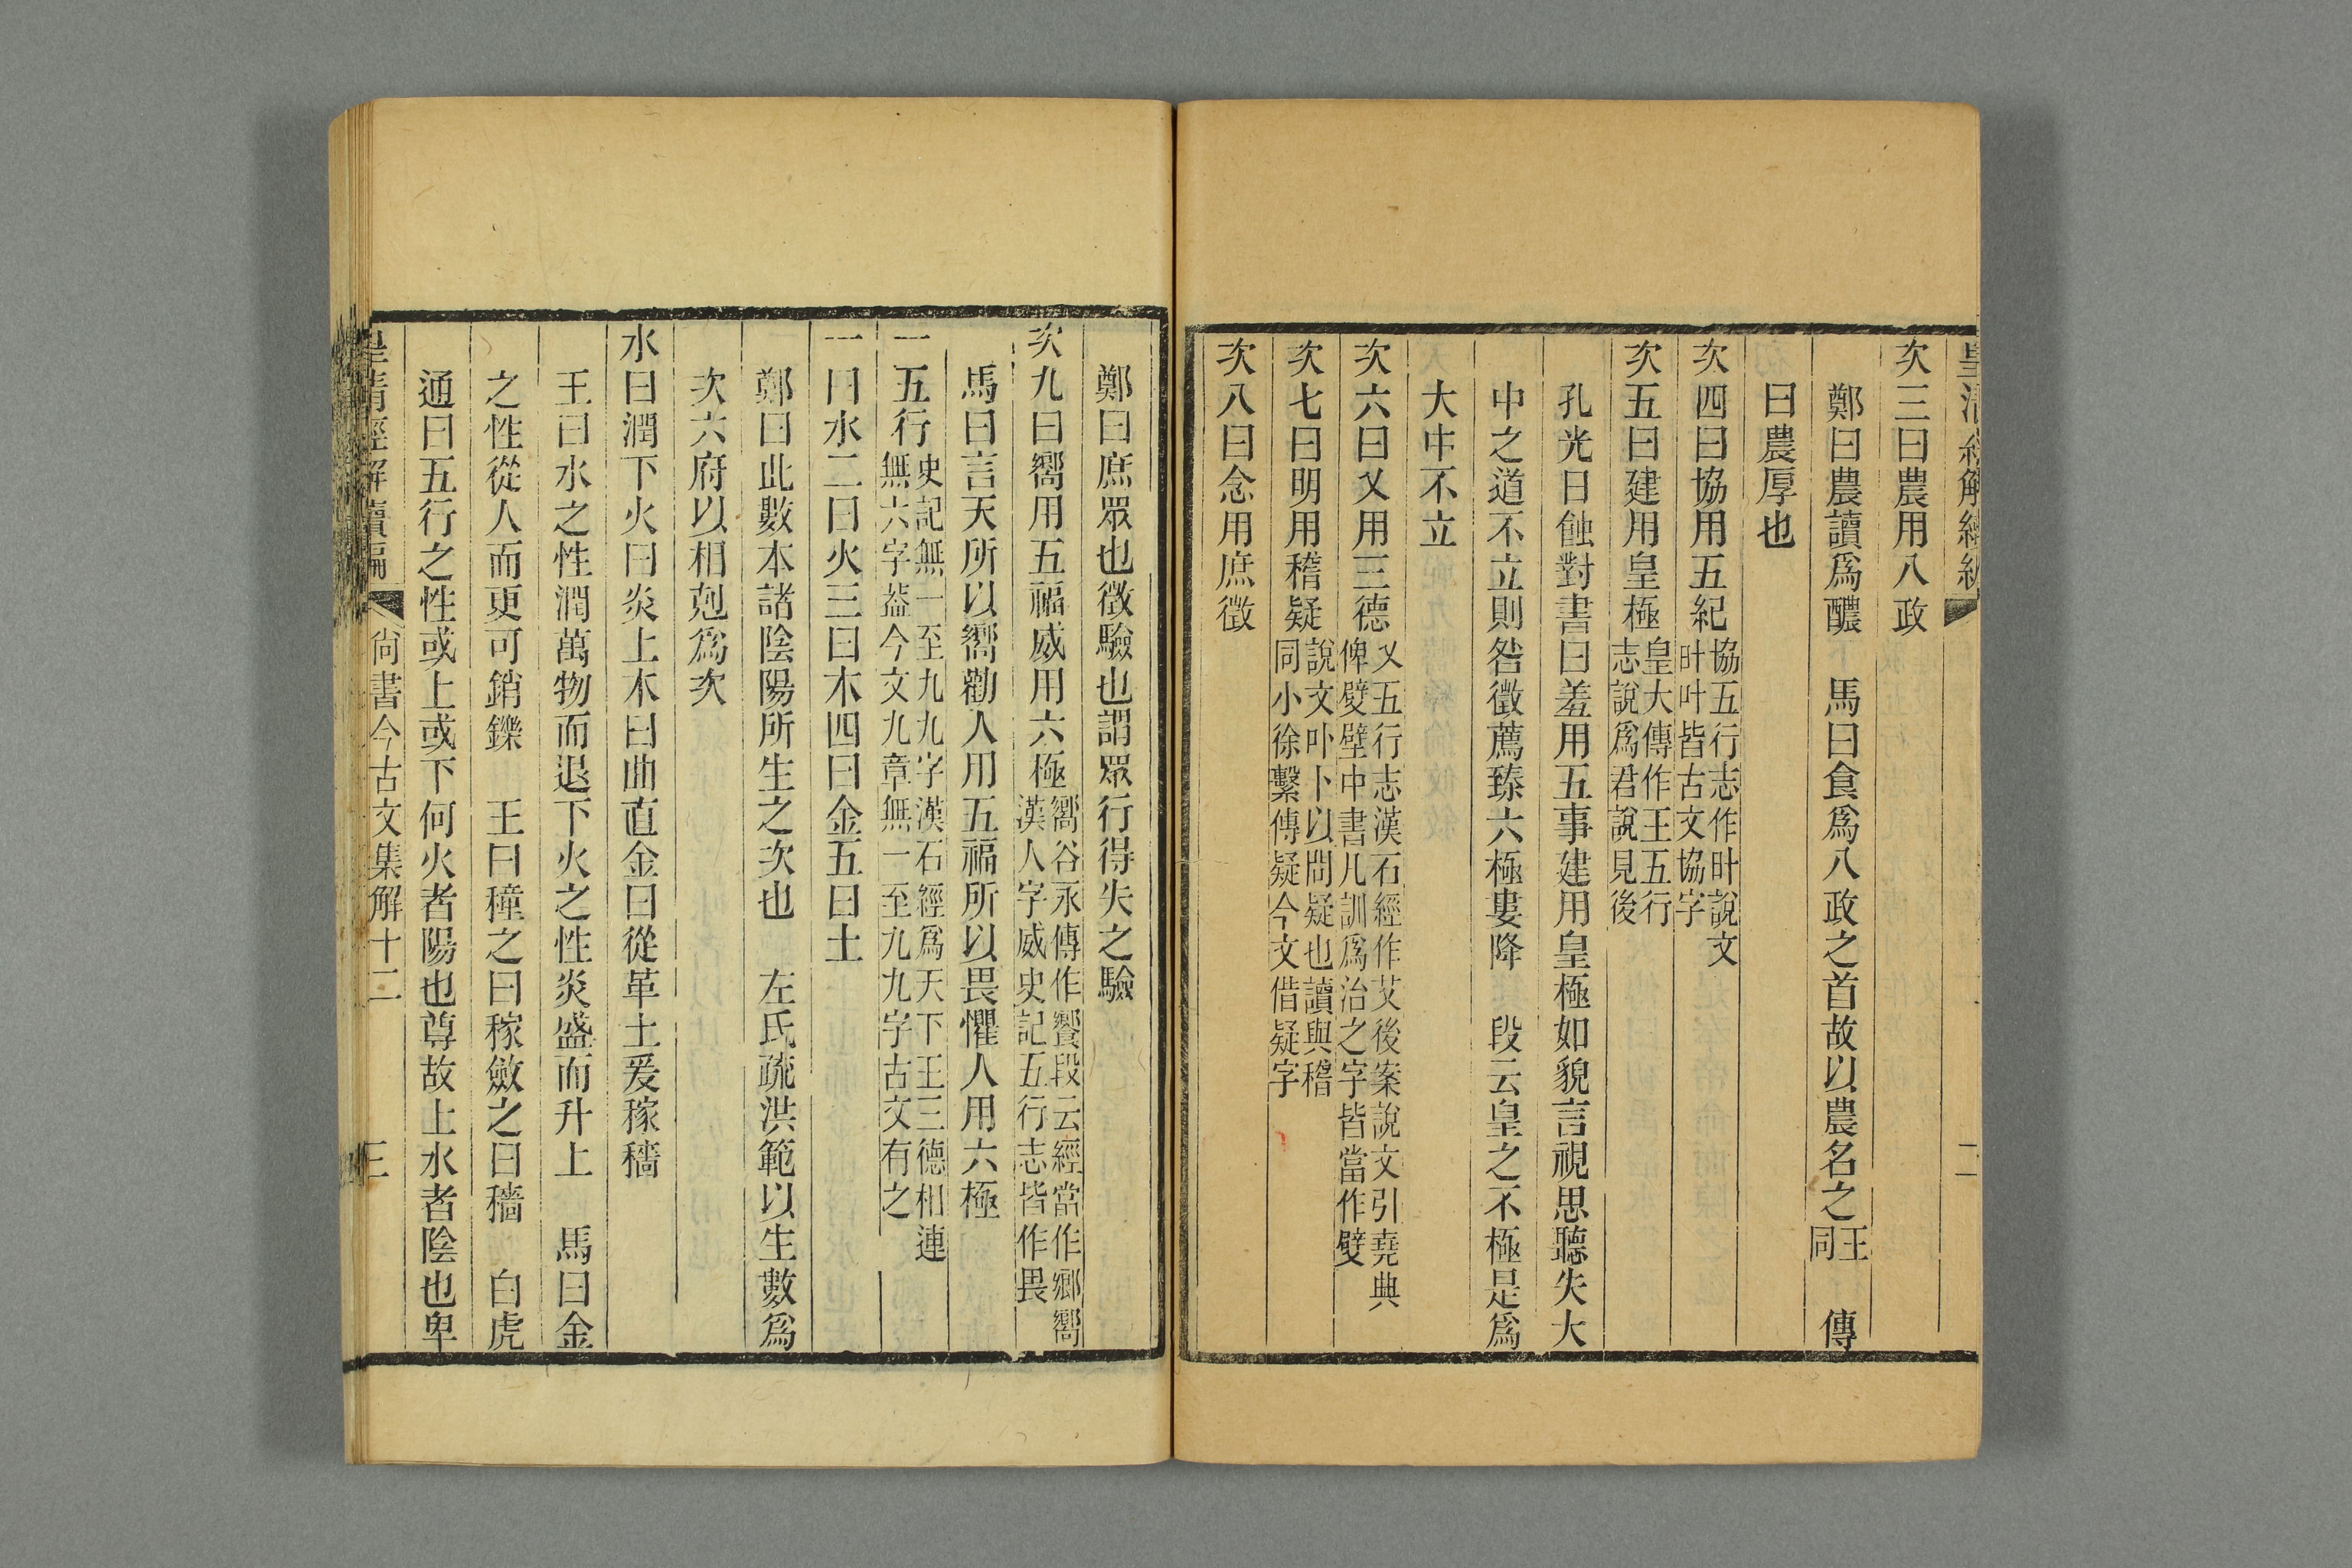 皇清經解續編 二
次三曰農用八政
鄭曰農讀爲醲 馬曰食爲八政之首故以農名之王同 傳
曰農厚也
次四曰協用五紀協五行志作旪說文旪叶皆古文協字
次五曰建用皇極皇大傳作王五行志說爲君說見後
孔光日蝕對書曰羞用五事建用皇極如貌言視思聽失大
中之道不立則咎徵薦臻六極婁降 段云皇之不極是爲
大中不立
次六曰乂用三德乂五行志漢石經作艾後案說文引堯典俾嬖壁中書凡訓爲治之字皆當作嬖
次七曰明用稽疑說文卟卜以問疑也讀與稽同小徐繫傳疑今文借疑字
次八曰念用庶徵
鄭曰庶眾也徵驗也謂眾行得失之驗
次九曰嚮用五福威用六極嚮谷永傳作饗段云經當作鄉嚮漢人字威史記五行志皆作畏
馬曰言天所以嚮勸人用五福所以畏懼人用六極
一五行史記無一至九九字漢石經爲天下王三德相連無六字葢今文九章無一至九九字古文有之
一曰水二曰火三曰木四曰金五曰土
鄭曰此數本諸陰陽所生之次也 左氏疏洪範以生數爲
次六府以相剋爲次
水曰潤下火曰炎上木曰曲直金曰從革土爰稼穡
王曰水之性潤萬物而退下火之性炎盛而升上 馬曰金
之性從人而更可銷鑠 王曰穜之曰稼斂之曰穡 白虎
通曰五行之性或上或下何火者陽也尊故上水者陰也卑
皇清經解續編 尙書今古文集解十二 三